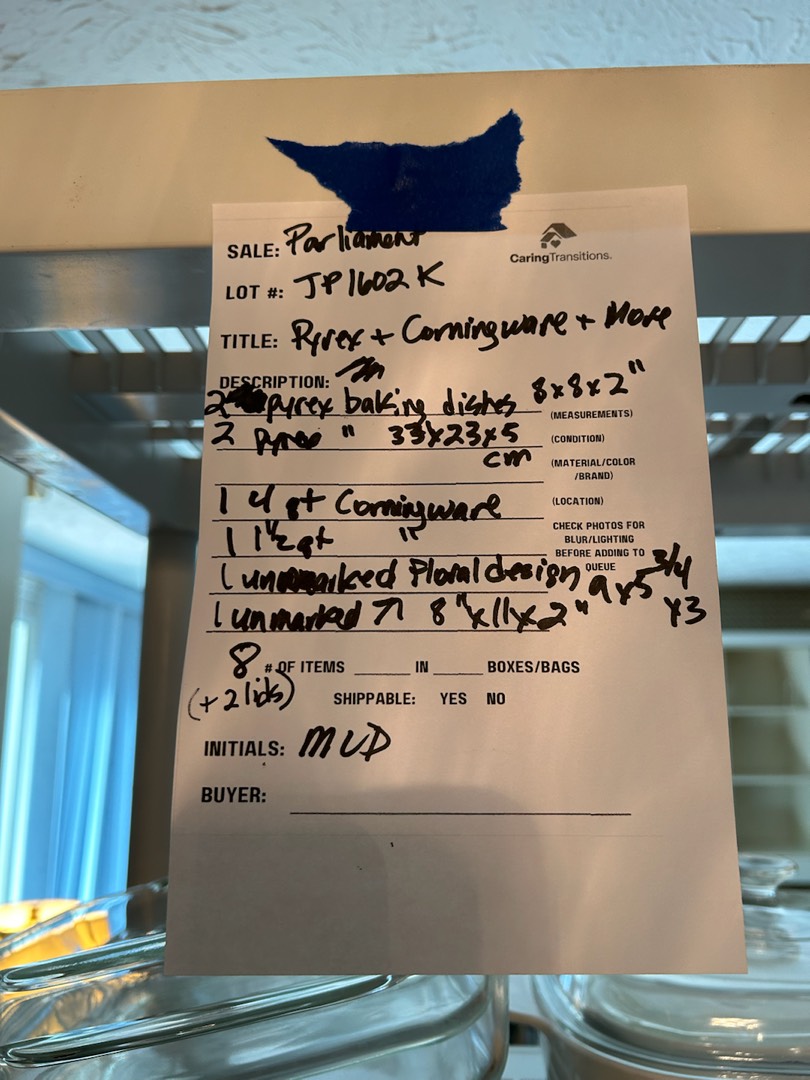 SALE: Parliament
CaringTransitions.
LOT #: JP1602K
TITLE: Pyrex + Corningware + More
DESCRIPTION:
2 pyrex baking dishes 8x8x2"
(MEASUREMENTS)
2 pyrex " 33x23x5
(CONDITION)
cm
(MATERIAL/COLOR
/BRAND)
1 4 qt Corningware
(LOCATION)
1 1 1/2 qt "
CHECK PHOTOS FOR
BLUR/LIGHTING
BEFORE ADDING TO
QUEUE
1 unmarked Floral design 9x5 3/4
x3
1 unmarked ↗ 8"x11x2"
8 # OF ITEMS ______ IN ______ BOXES/BAGS
(+ 2 lids)
SHIPPABLE: YES NO
INITIALS: MVD
BUYER: